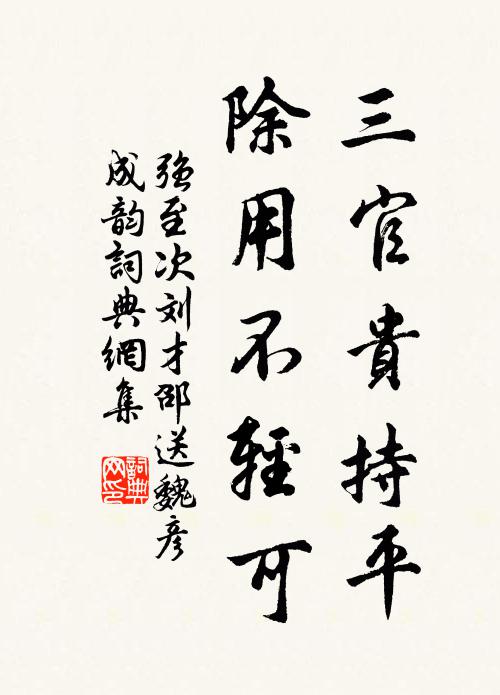 三官貴持平
除用不輕可
強至次刘才邵送魏彦
成韵詞典網集
詞典
网印